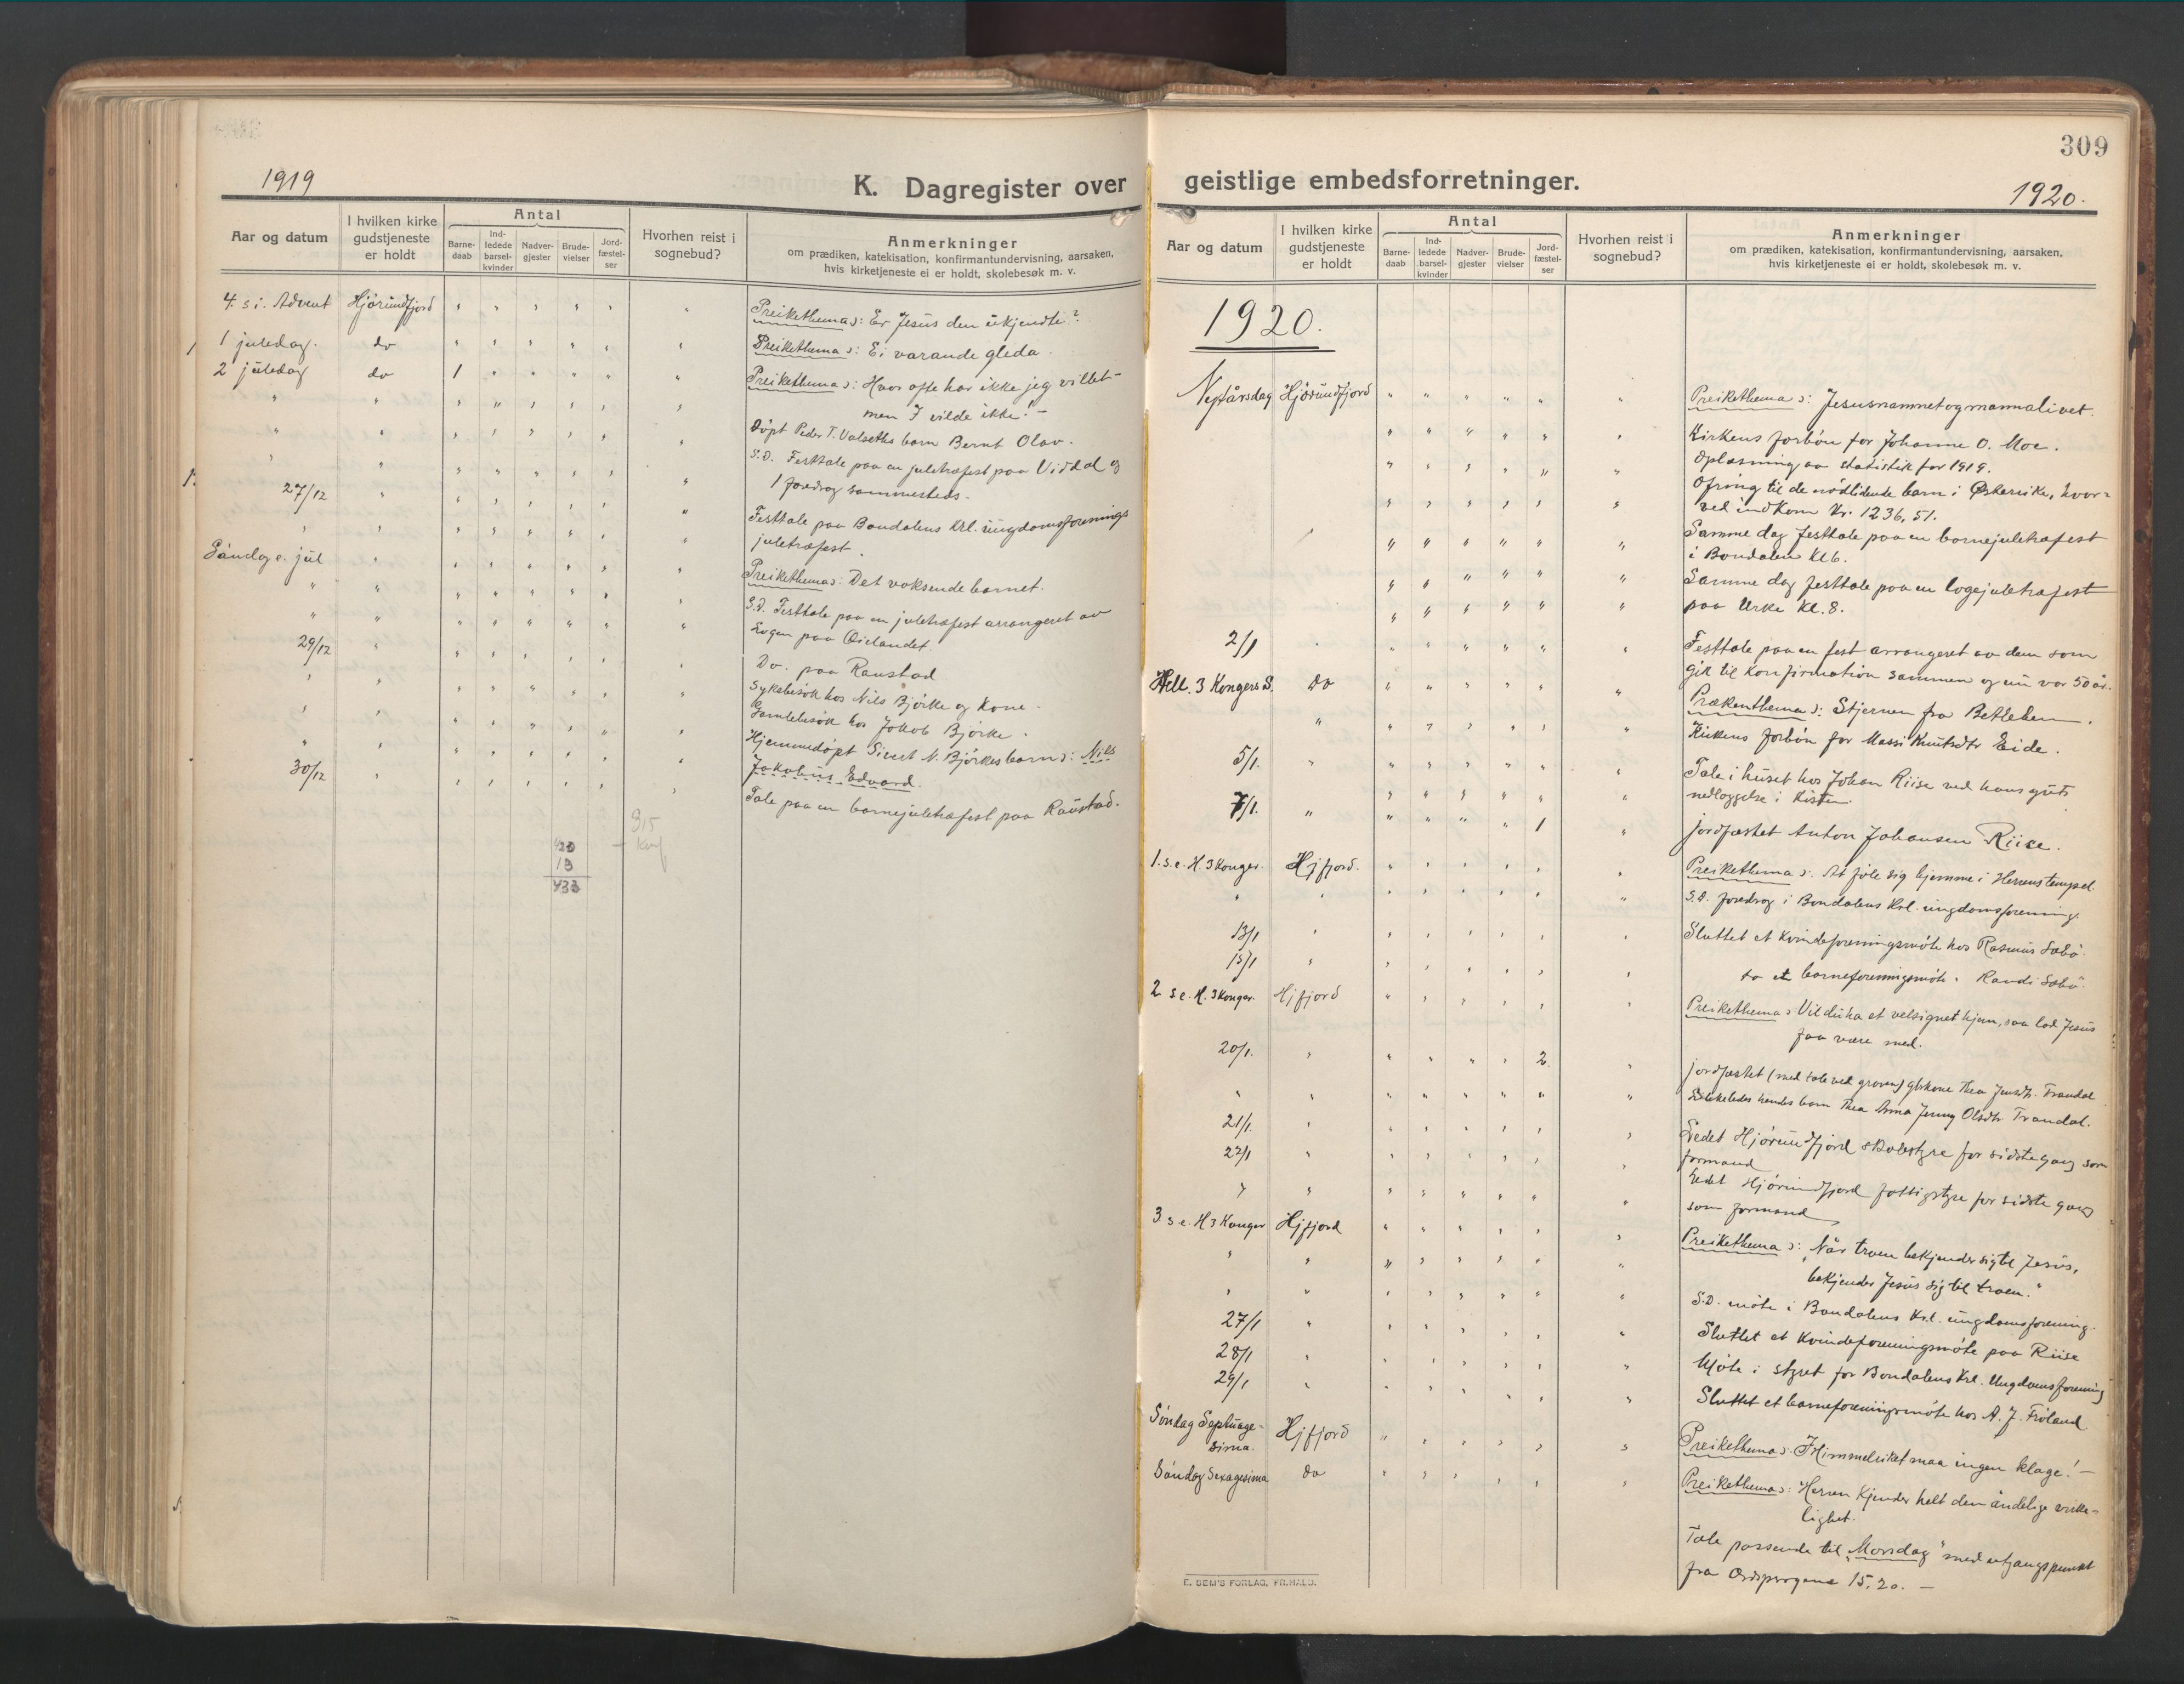 1919
K. Dagregister over
Aar og datum
I hvilken kirke gudstjeneste er holdt
Antal
Barne-daab
Ind-ledede barsel-kvinder
Nadver-gjester
Brude-vielser
Jord-fæstel-ser
Hvorhen reist i sognebud?
Anmerkninger
om prædiken, katekisation, konfirmantundervisning, aarsaken,
hvis kirketjeneste ei er holdt, skolebesøk m. v.
4. s. i. Advent Hjørundfjord Preikethema: Er Jesus den ukjendte?
1 juledag. do Preikethema: Ei varande gleda.
2 juledag do 1 Preikethema: Hvor ofte har ikke jeg villet -
men I vilde ikke! -
Døpt Peder T. Valseths barn Bernt Olav.
S.D. Festtale paa en juletræfest paa Viddal og
1 foredrag sammesteds.
27/12 Festtale paa Bondalens krl. ungdomsforenings
juletræfest.
Søndag e. jul Preikethema: Det voksende barnet.
S.D. Festtale paa en juletræfest arrangeret av
Logen paa Øielandet.
29/12 Do. paa Raustad
Sykebesøk hos Nils Bjørke og Kone.
Gamlebesøk hos Jakob Bjørke.
Hjemmedøpt Sivert N. Bjørkes barn: Nils
Jakobus Edvard.
30/12 Tale paa en barnejuletræfest paa Raustad.
315
420
13
433
309
geistlige embedsforretninger.
1920.
Aar og datum
I hvilken kirke gudstjeneste er holdt
Antal
Barne-daab
Ind-ledede barsel-kvinder
Nadver-gjester
Brude-vielser
Jord-fæstel-ser
Hvorhen reist i sognebud?
Anmerkninger
om prædiken, katekisation, konfirmantundervisning, aarsaken,
hvis kirketjeneste ei er holdt, skolebesøk m. v.
1920.
Nytårsdag Hjørundfjord Preikethema: Jesusnamnet og mannalivet.
Kirkens forbøn for Johanne O. Moe.
Oplæsning av statistik for 1919.
Ofring til de nødlidende barn i Østerrike, hvor=
ved indkom kr. 1236,51.
Samme dag festtale paa en barnejuletræfest
i Bondalen kl 6.
Samme dag festtale paa en logejuletræfest
paa Urke kl. 8.
2/1 Festtale paa en fest arrangeret av dem som
gik til konfirmation sammen og nu var 50 år.
Hell. 3 Kongers S. do Prækenthema: Stjernen fra Betlehem.
Kirkens forbøn for Massi Knutsdtr Eide.
5/1. Tale i huset hos Johan Riise ved hans guts
nedlæggelse i kisten.
7/1. 1 jordfæstet Anton Johansen Riise.
1. s. e. H. 3 Konger. Hjfjord. Preikethema: At føle sig hjemme i Herrens tempel.
S.D. foredrag i Bondalens krl. ungdomsforening.
13/1 Sluttet et kvindeforeningsmøte hos Rasmus Sæbø.
15/1 do et barneforeningsmøte. Randi Sæbø.
2 s e. H. 3 Konger. Hjfjord Preikethema: Vil du ha et velsignet hjem, saa lad Jesus
faa være med.
20/1. 2 jordfæstet (med tale ved graven) gbrkone Thea Jensdtr. Trandal
Likeledes hendes barn Thea Anna Jenny Olsdtr Trandal.
21/1. Ledet Hjørundfjord skolestyre for sidste gang som
formand
22/1 Ledet Hjørundfjord fattigstyre for sidste gang
som formand
3 s e. H 3 Konger Hjfjord Preikethema: „Når troen bekjender sig til Jesus,
bekjender Jesus sig til troen."
S.D. møte i Bondalens krl. ungdomsforening.
27/1 Sluttet et kvindeforeningsmøte paa Riise
28/1 Møte i styret for Bondalens krl. Ungdomsforening
29/1 Sluttet et barneforeningsmøte hos A. J. Frøland
Søndag Septuage-
sima. Hjfjord Preikethema: I Himmelriket maa ingen klage! -
Søndag Sexagesima do Preikethema: Herren kjender helt den åndelige virke-
lighet.
Tale passende til „Morsdag" med utgangspunkt
fra Ordsprogene 15,20. -
E. SEM'S FORLAG, FR.HALD.